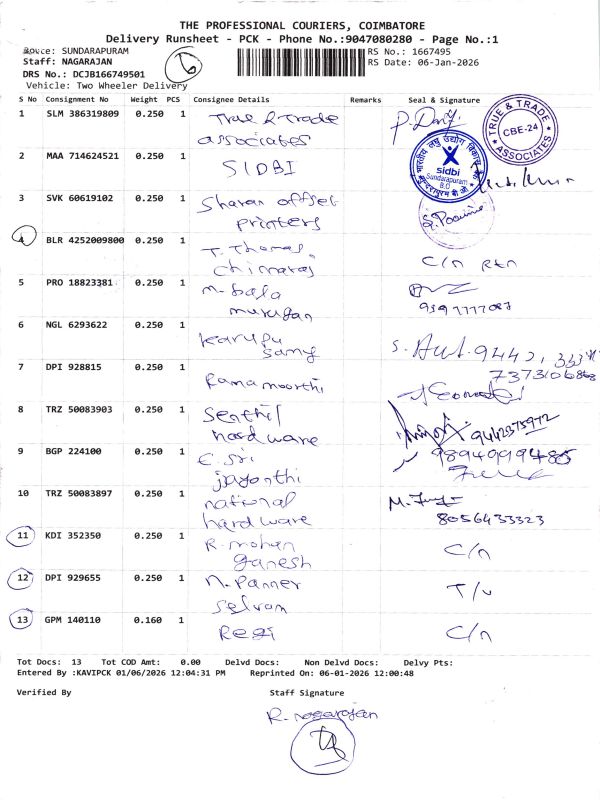 THE PROFESSIONAL COURIERS, COIMBATORE
Delivery Runsheet - PCK - Phone No.:9047080280 - Page No.:1
Route: SUNDARAPURAM
RS No.: 1667495
Staff: NAGARAJAN
RS Date: 06-Jan-2026
DRS No.: DCJB166749501
Vehicle: Two Wheeler Delivery
S No Consignment No Weight PCS Consignee Details Remarks Seal & Signature
1 SLM 386319809 0.250 1 True & Trade
associates
TRUE & TRADE
CBE-24
ASSOCIATES
2 MAA 714624521 0.250 1 SIDBI
sidbi
Sundarapuram
B.O
3 SVK 60619102 0.250 1 Sharan offset
printers
4 BLR 4252009800 0.250 1 T. Thomas
C/n Rtn
5 PRO 18823381 0.250 1 M. bala
murugan
6 NGL 6293622 0.250 1 Karupu
samy
7 DPI 928815 0.250 1 Ramamoorthi
7373106868
8 TRZ 50083903 0.250 1 Senthil
hardware
9442375972
9 BGP 224100 0.250 1 E. Sri
jayanthi
10 TRZ 50083897 0.250 1 national
hardware
8056433323
11 KDI 352350 0.250 1 R. mohan
ganesh
C/n
12 DPI 929655 0.250 1 N. Panner
selvam
13 GPM 140110 0.160 1 Regi C/n
Tot Docs: 13 Tot COD Amt: 0.00 Delvd Docs: Non Delvd Docs: Delvy Pts:
Entered By :KAVIPCK 01/06/2026 12:04:31 PM Reprinted On: 06-01-2026 12:00:48
Verified By Staff Signature
R. nagarajan